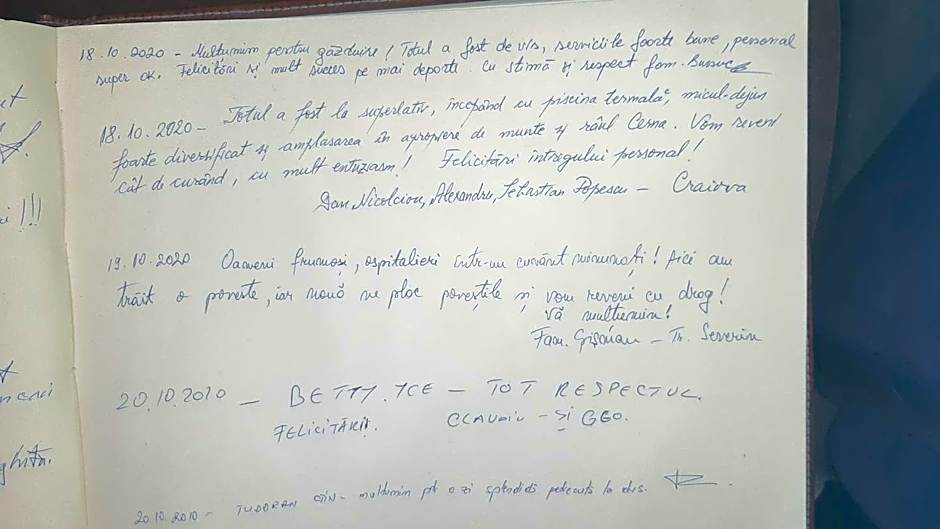 18.10.2020 - Mulțumim pentru găzduire! Totul a fost de vis, serviciile foarte bune, personal
super ok. Felicitări și mult succes pe mai departe. Cu stimă și respect fam.
18.10.2020 - Totul a fost la superlativ, începând cu piscina termală, micul-dejun
foarte diversificat și amplasarea în apropiere de munte și râul Cerna. Vom reveni
cât de curând, cu mult entuziasm! Felicitări întregului personal!
Dan Nicolciou, Alexandru, Sebastian Popescu - Craiova
19.10.2020 Oameni frumoși, ospitalieri într-un cuvânt minunați! Aici am
trăit o poveste, iar nouă ne plac poveștile și vom reveni cu drag!
Vă mulțumim!
Fam. - Tr. Severin
20.10.2020 - BETTY.ICE - TOT RESPECTUL.
FELICITĂRI. CLAUDIU - ȘI GEO.
20.10.2010 - TUDORAN DIN - multumim pt o zi splendidă petrecută la dvs.
ut
i !!!
ghita.